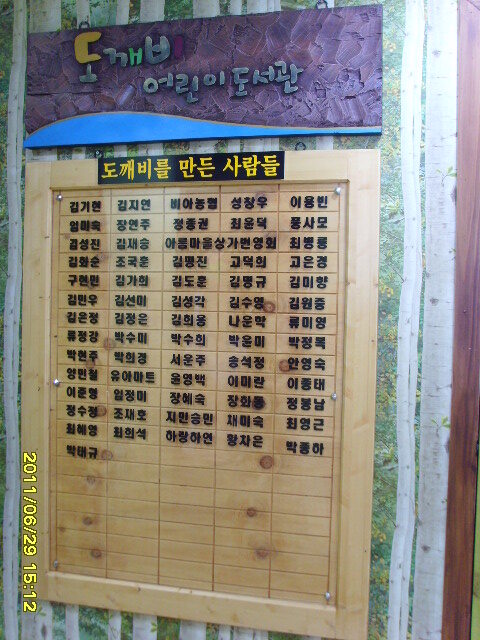 도깨비
어린이도서관
도깨비를 만든 사람들
김기현 김지연 비아농협 성창우 이용빈
임미숙 장연주 정종권 최윤덕 풍사모
김성진 김재승 아름마을상가번영회 최병룡
김화순 조국훈 김명진 고덕희 고은경
구현민 김가희 김도훈 김명규 김미향
김민우 김선미 김성각 김수영 김원중
김은정 김정은 김희웅 나운막 류미영
류정강 박수미 박수희 박윤미 박정록
박현주 박희경 서운주 송석정 안영숙
양만철 유아마트 윤영백 이미란 이종태
이준영 임정미 장혜숙 장화동 정봉남
정수정 조재호 지민승민 채미숙 최영근
최혜영 최희석 하랑하연 황차은 박종하
박태규
2011/06/29 15:12